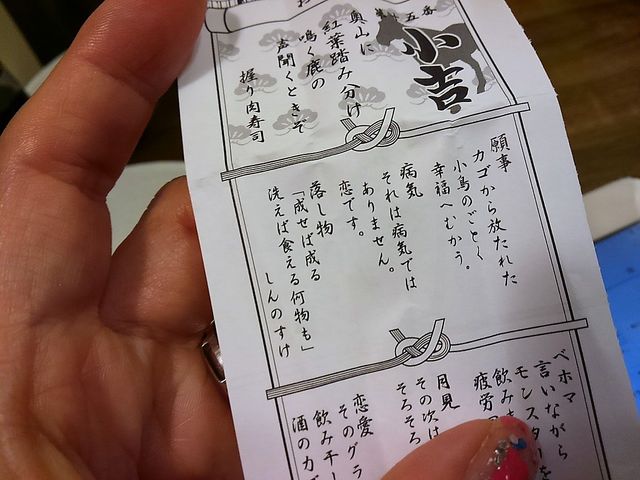 五番
小吉
奥山に
紅葉踏み分け
鳴く鹿の
声聞くときぞ
握り肉寿司
願事
カゴから放たれた
小鳥のごとく
幸福へむかう。
病気
それは病気では
ありません。
恋です。
落し物
「成せば成る
洗えば食える何物も」
しんのすけ
ベホマ
言いながら
モンスター
飲み
疲労
月見
その次は
そろそろ
恋愛
そのグラ
飲み干し
酒の力で